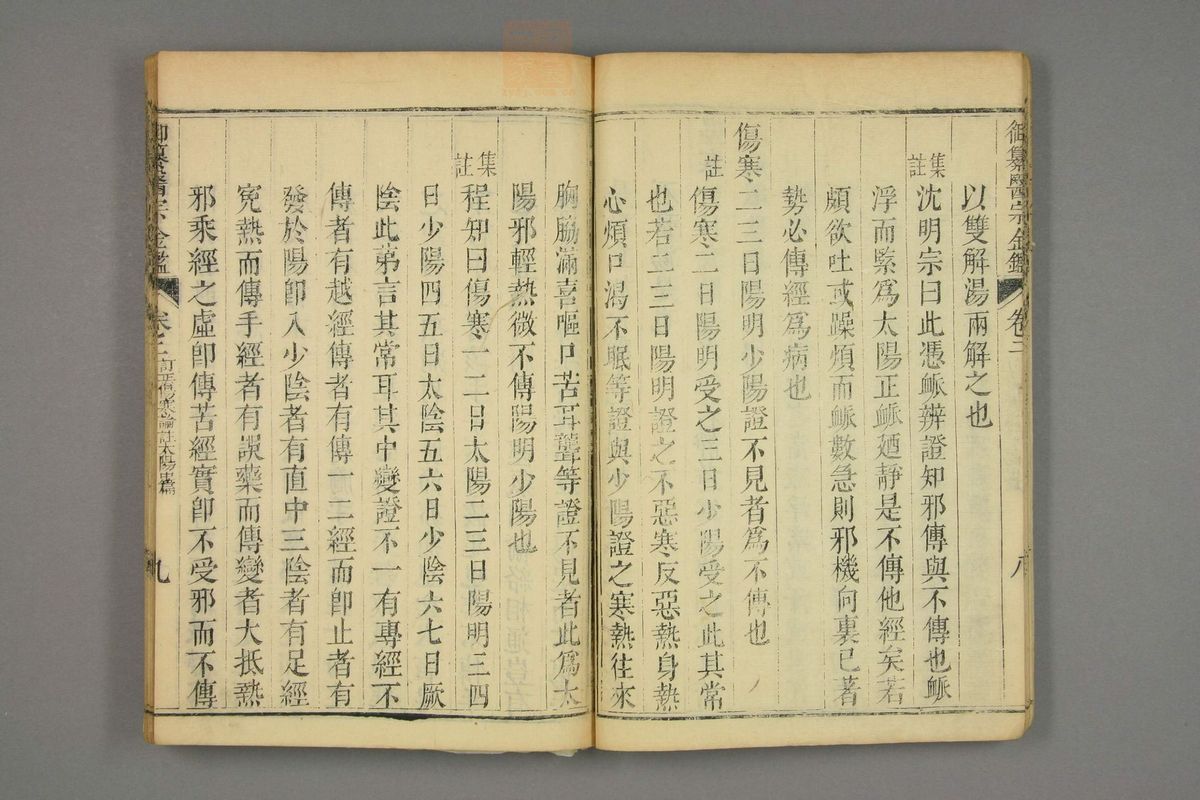 御纂醫宗金鑑 卷二 八
以雙解湯兩解之也
集註
沈明宗曰此憑脈辨證知邪傳與不傳也脈
浮而緊爲太陽正脈廼靜是不傳他經矣若
頗欲吐或躁煩而脈數急則邪機向裏已著
勢必傳經爲病也
傷寒二三日陽明少陽證不見者爲不傳也
註
傷寒二日陽明受之三日少陽受之此其常
也若二三日陽明證之不惡寒反惡熱身熱
心煩口渴不眠等證與少陽證之寒熱往來
胸脇滿喜嘔口苦耳聾等證不見者此爲太
陽邪輕熱微不傳陽明少陽也
集註
程知曰傷寒一二日太陽二三日陽明三四
日少陽四五日太陰五六日少陰六七日厥
陰此第言其常耳其中變證不一有專經不
傳者有越經傳者有傳一二經而卽止者有
發於陽卽入少陰者有直中三陰者有足經
寃熱而傳手經者有誤藥而傳變者大抵熱
邪乘經之虛卽傳若經實卽不受邪而不傳
御纂醫宗金鑑 卷二 訂正傷寒論註太陽中篇 九